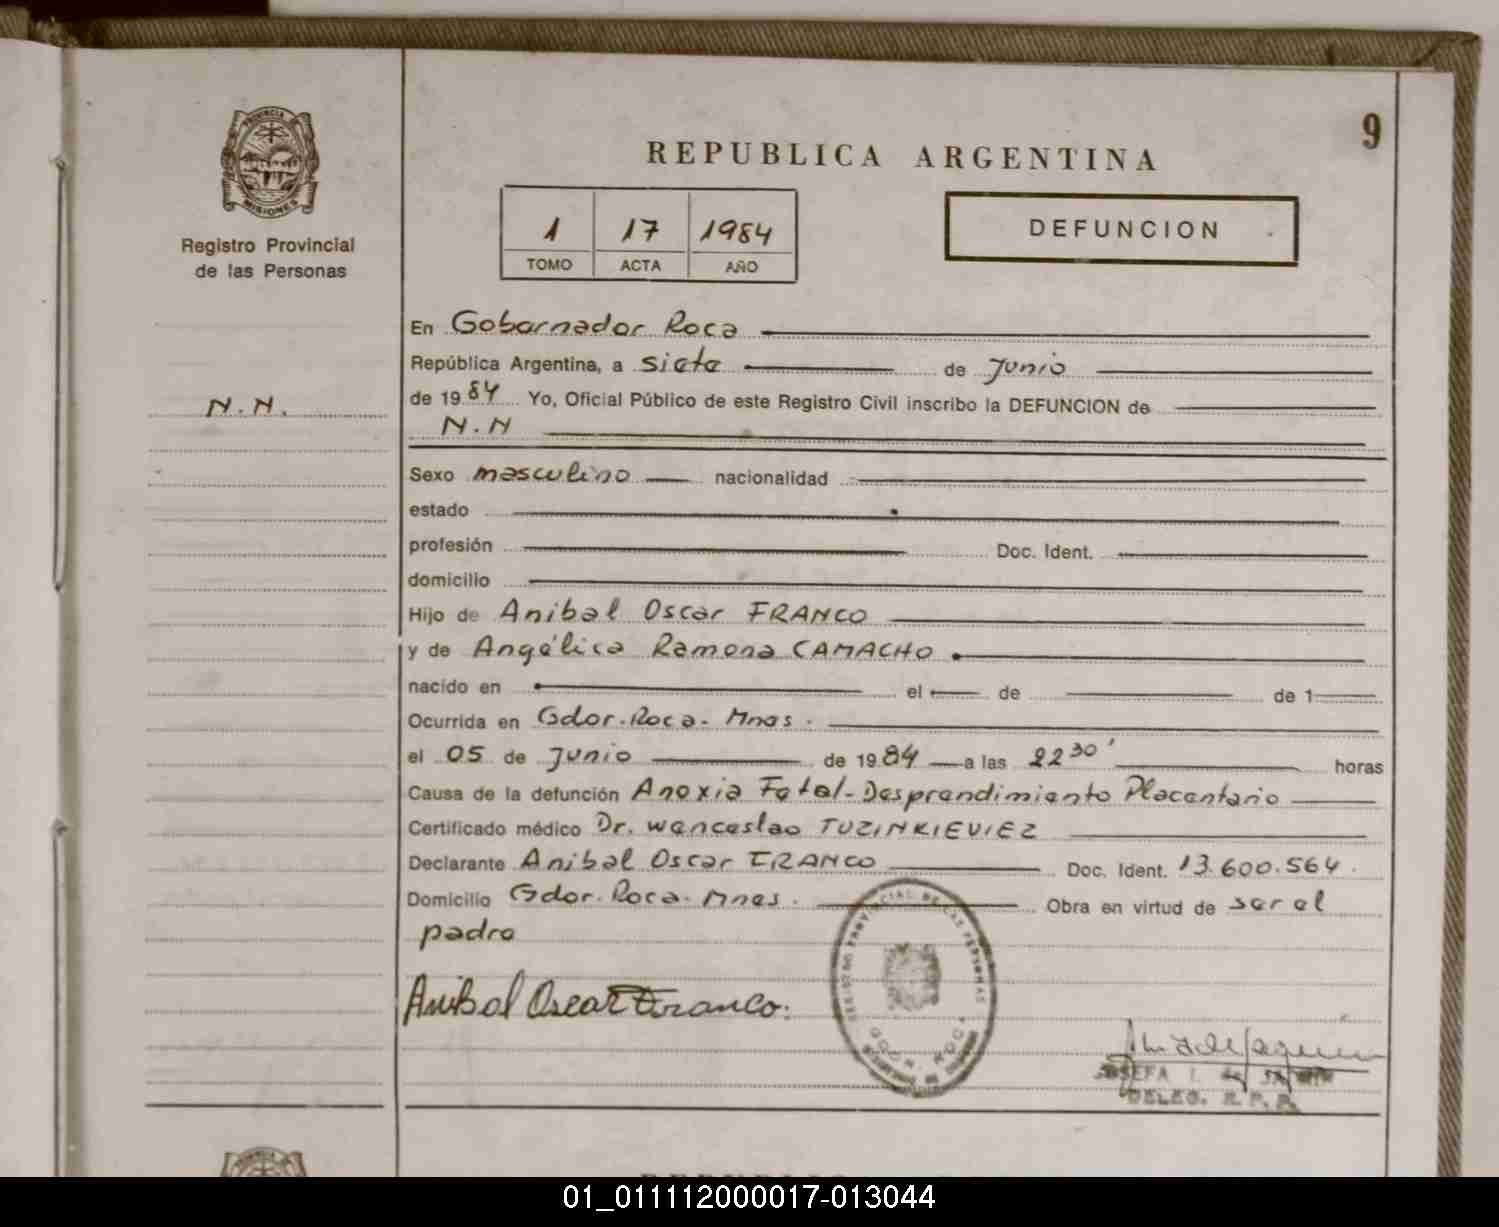 9
PROVINCIA DE
MISIONES
Registro Provincial
de las Personas
REPUBLICA ARGENTINA
1 17 1984
TOMO ACTA AÑO
DEFUNCION
En Gobernador Roca
República Argentina, a siete de Junio
N.N.
de 1984 Yo, Oficial Público de este Registro Civil inscribo la DEFUNCION de
N.N
Sexo masculino nacionalidad
estado
profesión Doc. Ident.
domicilio
Hijo de Anibal Oscar FRANCO
y de Angélica Ramona CAMACHO
nacido en el de de 1
Ocurrida en Gdor. Roca - Mnes.
el 05 de Junio de 1984 a las 22 30' horas
Causa de la defunción Anoxia Fetal - Desprendimiento Placentario
Certificado médico Dr. Wenceslao TUZINKIEVIEZ
Declarante Anibal Oscar FRANCO Doc. Ident. 13.600.564.
Domicilio Gdor. Roca - Mnes. Obra en virtud de ser el
padre
Anibal Oscar Franco
REGISTRO PROVINCIAL DE LAS PERSONAS
GDOR. ROCA
DELEG. R. P. P.
01_011112000017-013044